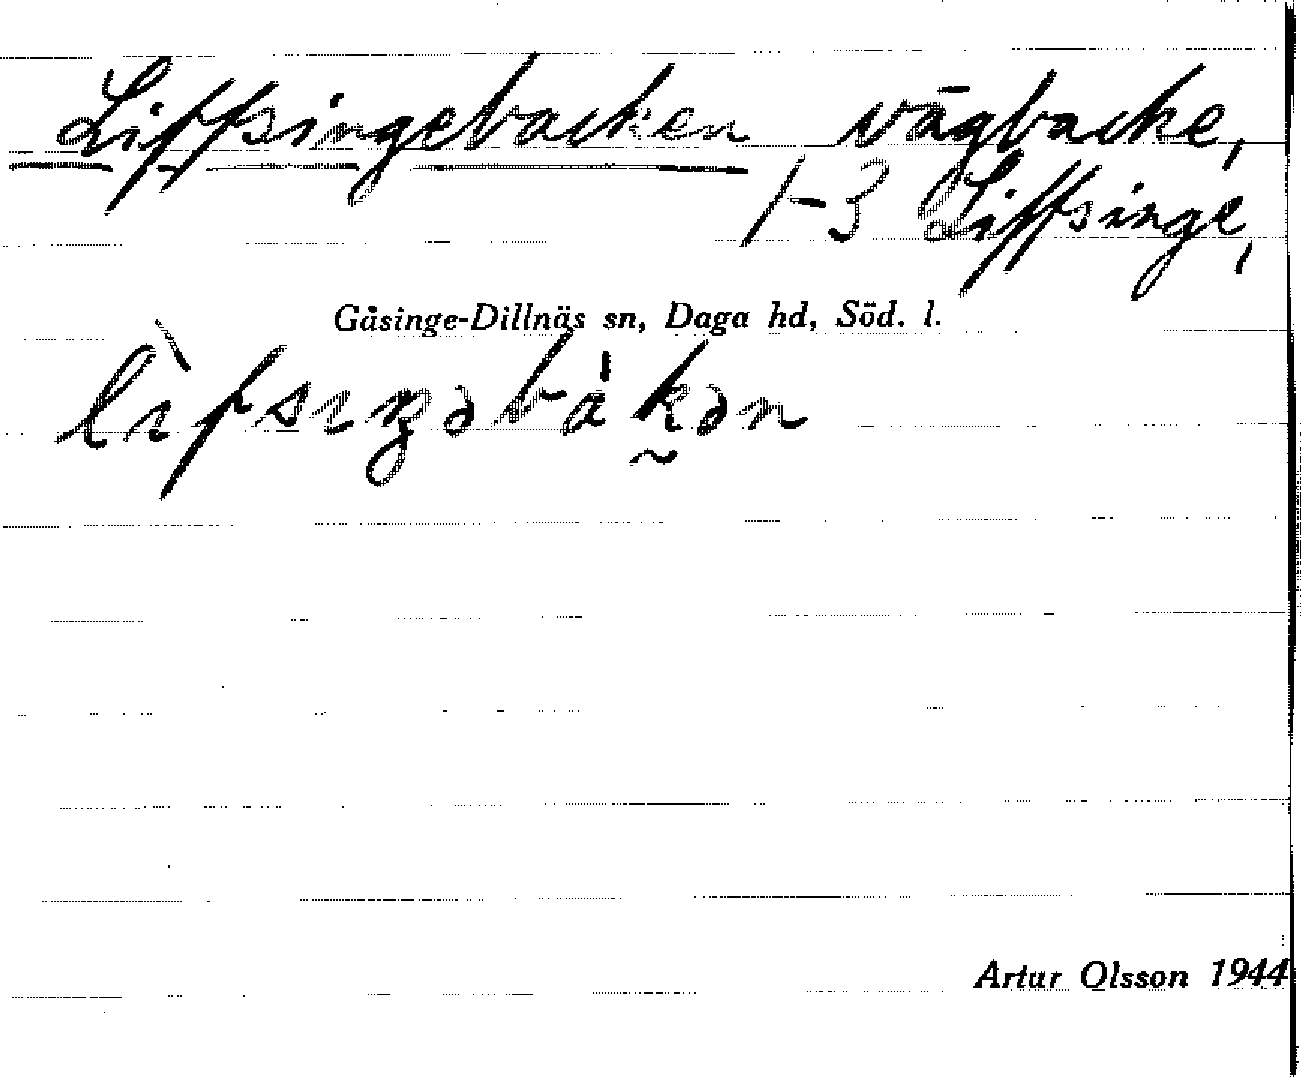 Liffsingebacken vägbacke,
1-3 Liffsinge,
Gåsinge-Dillnäs sn, Daga hd, Söd. l.
lìfsıŋəbákən
Artur Olsson 1944